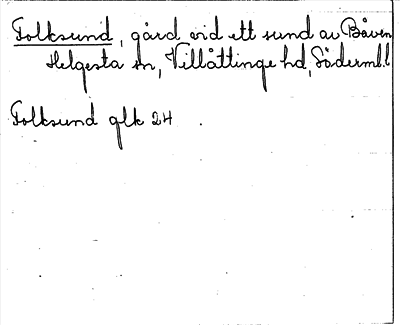 Folksund, gård vid ett sund av Båven
Helgesta sn, Villåttinge hd, Söderml.l
Folksund glk 24 .